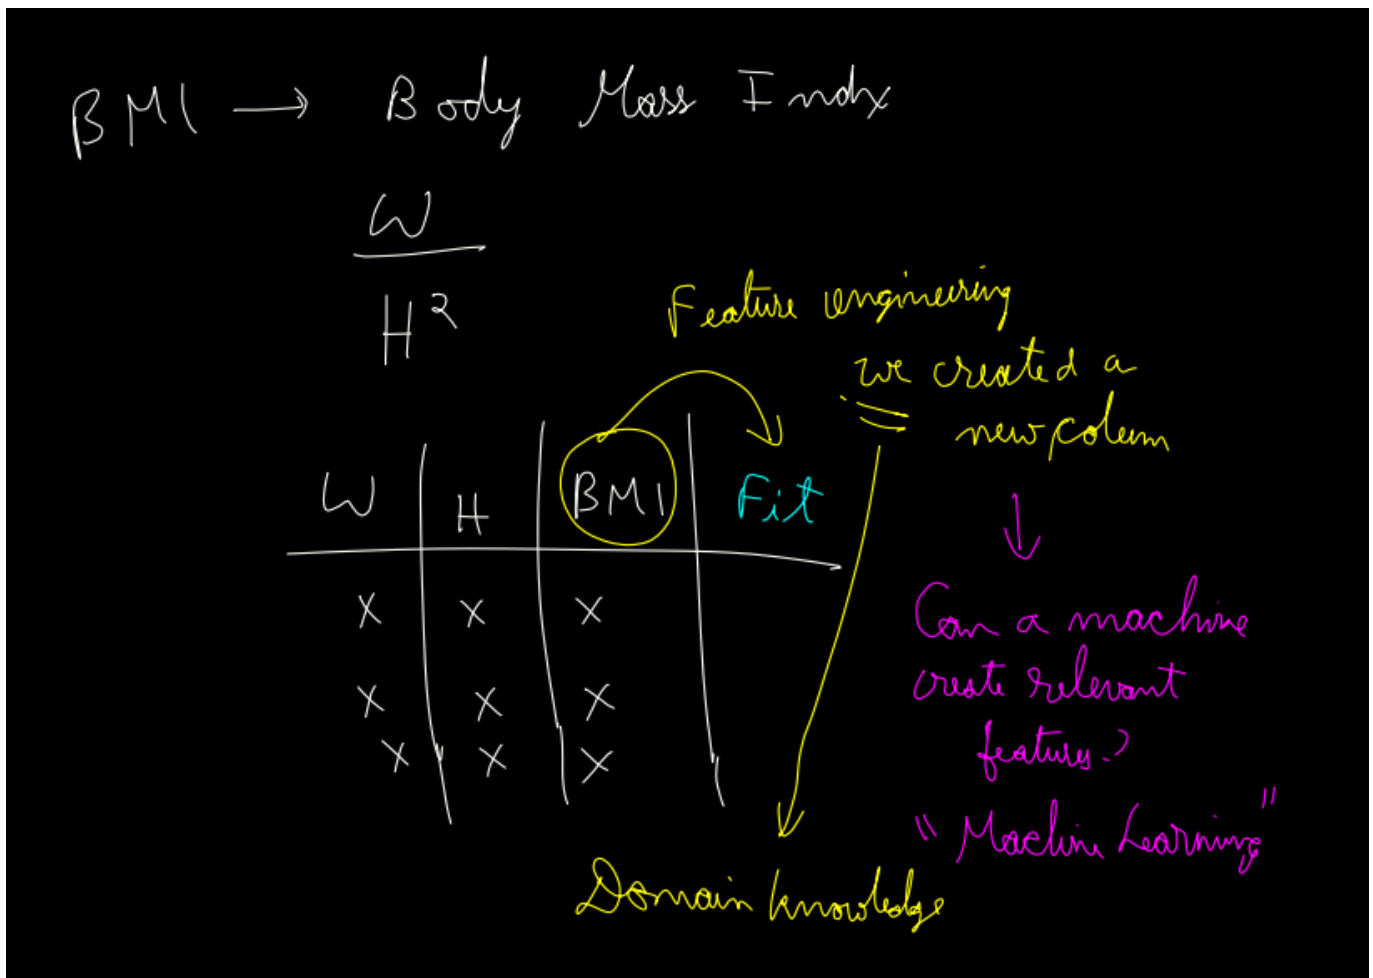 BMI → Body Mass Indx
W
H²
Feature engineering
we created a
new colum
W H BMI Fit
x x x
x x x
x x x
Can a machine
create relevant
features?
"Machine Learning"
Domain knowledge